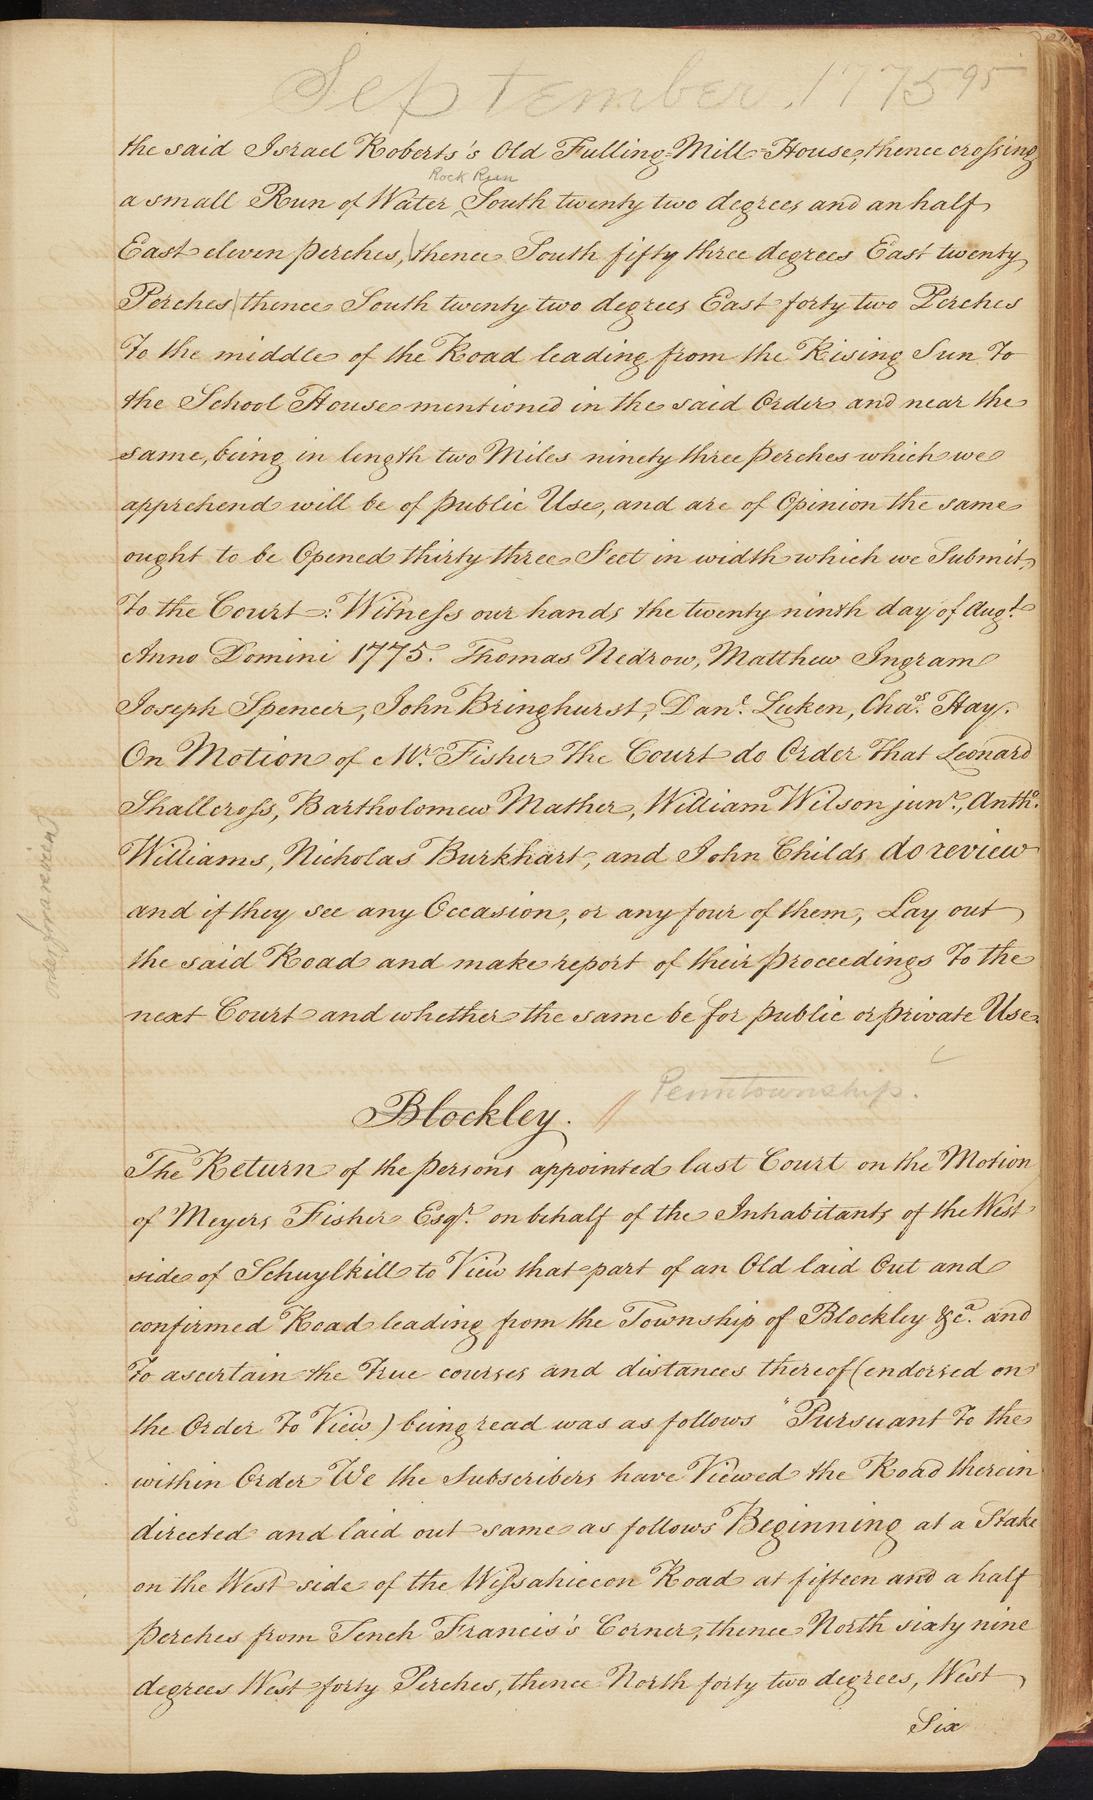 September. 1775 95
the said Israel Roberts's Old Fulling-Mill-House, thence crossing
Rock Run
a small Run of Water South twenty two degrees and an half
East eleven perches, thence South fifty three degrees East twenty
Perches thence South twenty two degrees East forty two Perches
To the middle of the Road leading from the Rising Sun To
the School House mentioned in the said Order and near the
same, being in length two Miles ninety three perches which we
apprehend will be of public Use, and are of Opinion the same
ought to be Opened thirty three Feet in width which we Submit,
To the Court: Witness our hands the twenty ninth day of Augt.
Anno Domini 1775. Thomas Nedrow, Matthew Ingram
Joseph Spencer, John Bringhurst, Danl. Luken, Chas. Hay.
On Motion of Mr. Fisher The Court do Order That Leonard
Shallcross, Bartholomew Mather, William Wilson junr., Anthо.
Williams, Nicholas Burkhart, and John Childs do review
and if they see any Occasion, or any four of them, Lay out
the said Road and make report of their proceedings To the
next Court and whether the same be for public or private Use.
order for a review
Penntownship.
Blockley. //
The Return of the persons appointed last Court on the Motion
of Meyers Fisher Esqr. on behalf of the Inhabitants of the West
side of Schuylkill to View that part of an Old laid Out and
confirmed Road leading from the Township of Blockley &ca. and
To ascertain the True courses and distances thereof (endorsed on
the Order To View) being read was as follows "Pursuant To the
within Order We the Subscribers have Viewed the Road therein
directed and laid out same as follows Beginning at a Stake
on the West side of the Wissahiccon Road at fifteen and a half
perches from Tench Francis's Corner, thence North sixty nine
degrees West forty Perches, thence North forty two degrees, West
Six